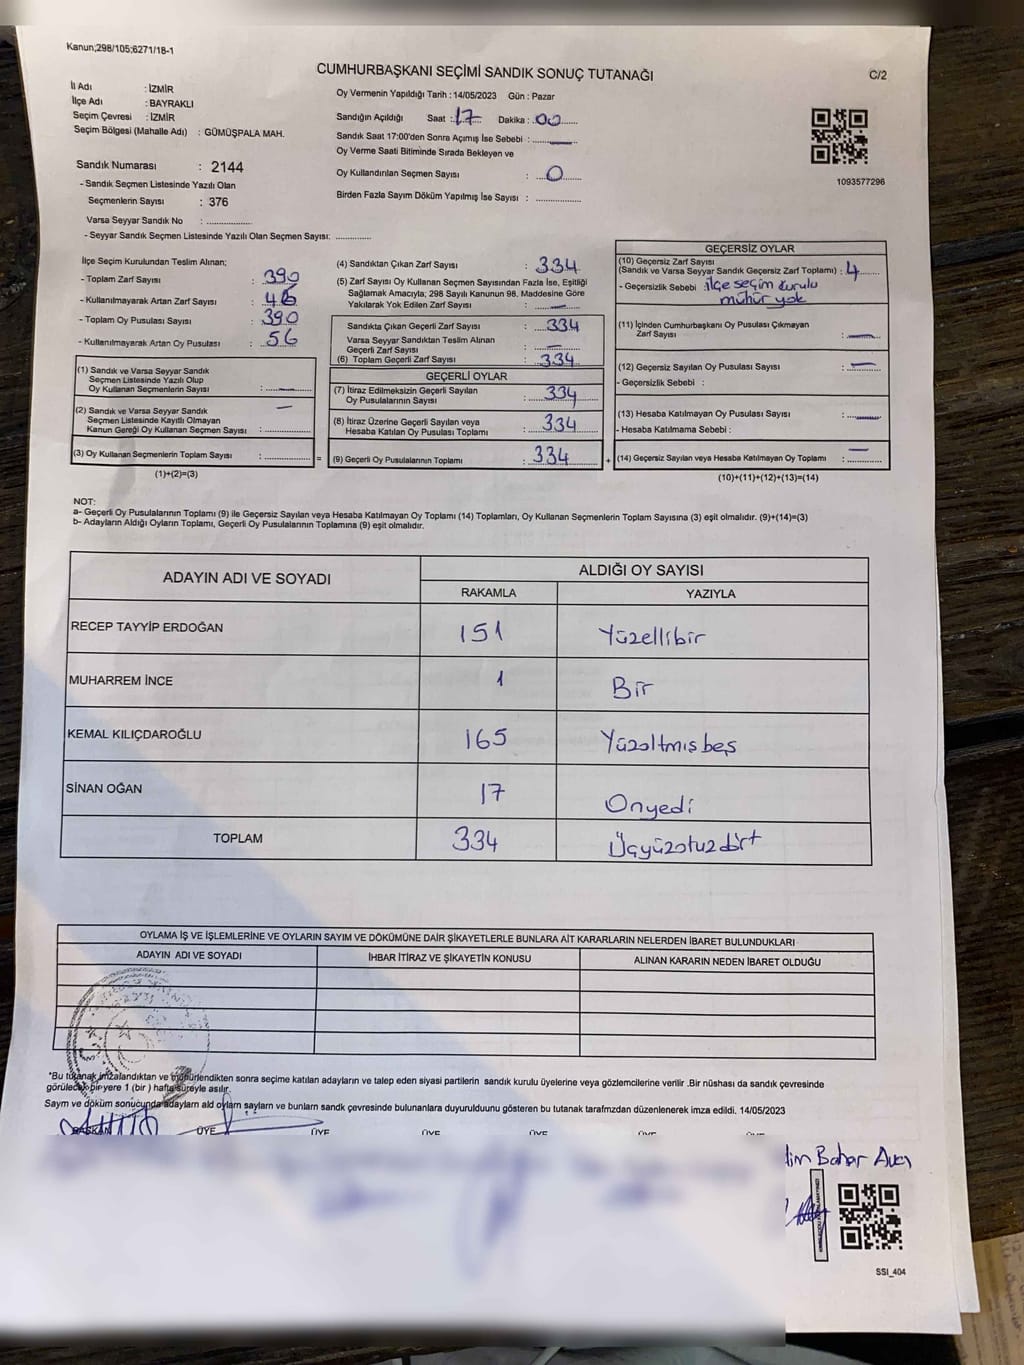 Kanun;298/105;6271/18-1
CUMHURBAŞKANI SEÇİMİ SANDIK SONUÇ TUTANAĞI
C/2
İl Adı : İZMİR
İlçe Adı : BAYRAKLI
Seçim Çevresi : İZMİR
Seçim Bölgesi (Mahalle Adı) : GÜMÜŞPALA MAH.
Sandık Numarası : 2144
- Sandık Seçmen Listesinde Yazılı Olan
Seçmenlerin Sayısı : 376
Varsa Seyyar Sandık No : ............
- Seyyar Sandık Seçmen Listesinde Yazılı Olan Seçmen Sayısı: ............
Oy Vermenin Yapıldığı Tarih : 14/05/2023 Gün : Pazar
Sandığın Açıldığı Saat : 17 Dakika : 00
Sandık Saat 17:00'den Sonra Açımış İse Sebebi :
Oy Verme Saati Bitiminde Sırada Bekleyen ve
Oy Kullandırılan Seçmen Sayısı : 0
Birden Fazla Sayım Döküm Yapılmış İse Sayısı : ............
1093577296
İlçe Seçim Kurulundan Teslim Alınan;
- Toplam Zarf Sayısı : 390
- Kullanılmayarak Artan Zarf Sayısı :
- Toplam Oy Pusulası Sayısı : 390
- Kullanılmayarak Artan Oy Pusulası : 56
(1) Sandık ve Varsa Seyyar Sandık
Seçmen Listesinde Yazılı Olup
Oy Kullanan Seçmenlerin Sayısı : —
(2) Sandık ve Varsa Seyyar Sandık —
Seçmen Listesinde Kayıtlı Olmayan
Kanun Gereği Oy Kullanan Seçmen Sayısı : ............
(3) Oy Kullanan Seçmenlerin Toplam Sayısı : ............ =
(1)+(2)=(3)
(4) Sandıktan Çıkan Zarf Sayısı : 334
(5) Zarf Sayısı Oy Kullanan Seçmen Sayısından Fazla İse, Eşitliği
Sağlamak Amacıyla; 298 Sayılı Kanunun 98. Maddesine Göre
Yakılarak Yok Edilen Zarf Sayısı : —
Sandıkta Çıkan Geçerli Zarf Sayısı : 334
Varsa Seyyar Sandıktan Teslim Alınan
Geçerli Zarf Sayısı : —
(6) Toplam Geçerli Zarf Sayısı : 334
GEÇERLİ OYLAR
(7) İtiraz Edilmeksizin Geçerli Sayılan
Oy Pusulalarının Sayısı : 334
(8) İtiraz Üzerine Geçerli Sayılan veya
Hesaba Katılan Oy Pusulası Toplamı : 334
(9) Geçerli Oy Pusulalarının Toplamı : 334 +
GEÇERSİZ OYLAR
(10) Geçersiz Zarf Sayısı
(Sandık ve Varsa Seyyar Sandık Geçersiz Zarf Toplamı) : 4
- Geçersizlik Sebebi : ilçe seçim kurulu
mühür yok
(11) İçinden Cumhurbaşkanı Oy Pusulası Çıkmayan
Zarf Sayısı : —
(12) Geçersiz Sayılan Oy Pusulası Sayısı : —
- Geçersizlik Sebebi :
(13) Hesaba Katılmayan Oy Pusulası Sayısı : —
- Hesaba Katılmama Sebebi :
(14) Geçersiz Sayılan veya Hesaba Katılmayan Oy Toplamı : —
(10)+(11)+(12)+(13)=(14)
NOT:
a- Geçerli Oy Pusulalarının Toplamı (9) ile Geçersiz Sayılan veya Hesaba Katılmayan Oy Toplamı (14) Toplamları, Oy Kullanan Seçmenlerin Toplam Sayısına (3) eşit olmalıdır. (9)+(14)=(3)
b- Adayların Aldığı Oyların Toplamı, Geçerli Oy Pusulalarının Toplamına (9) eşit olmalıdır.
ADAYIN ADI VE SOYADI ALDIĞI OY SAYISI
RAKAMLA YAZIYLA
RECEP TAYYİP ERDOĞAN 151 Yüzellibir
MUHARREM İNCE 1 Bir
KEMAL KILIÇDAROĞLU 165 Yüzaltmışbeş
SİNAN OĞAN 17 Onyedi
TOPLAM 334 Üçyüzotuzdört
OYLAMA İŞ VE İŞLEMLERİNE VE OYLARIN SAYIM VE DÖKÜMÜNE DAİR ŞİKAYETLERLE BUNLARA AİT KARARLARIN NELERDEN İBARET BULUNDUKLARI
ADAYIN ADI VE SOYADI İHBAR İTİRAZ VE ŞİKAYETİN KONUSU ALINAN KARARIN NEDEN İBARET OLDUĞU
*Bu tutanak imzalandıktan ve mühürlendikten sonra seçime katılan adayların ve talep eden siyasi partilerin sandık kurulu üyelerine veya gözlemcilerine verilir .Bir nüshası da sandık çevresinde
görülecek bir yere 1 (bir ) hafta süreyle asılır.
Sayım ve döküm sonucunda adayların ald oyların sayları ve bunların sandk çevresinde bulunanlara duyurulduunu gösteren bu tutanak tarafmzdan düzenlenerek imza edildi. 14/05/2023
BAŞKAN ÜYE ÜYE ÜYE ÜYE ÜYE ÜYE
Bahar Avcı
SSI_404